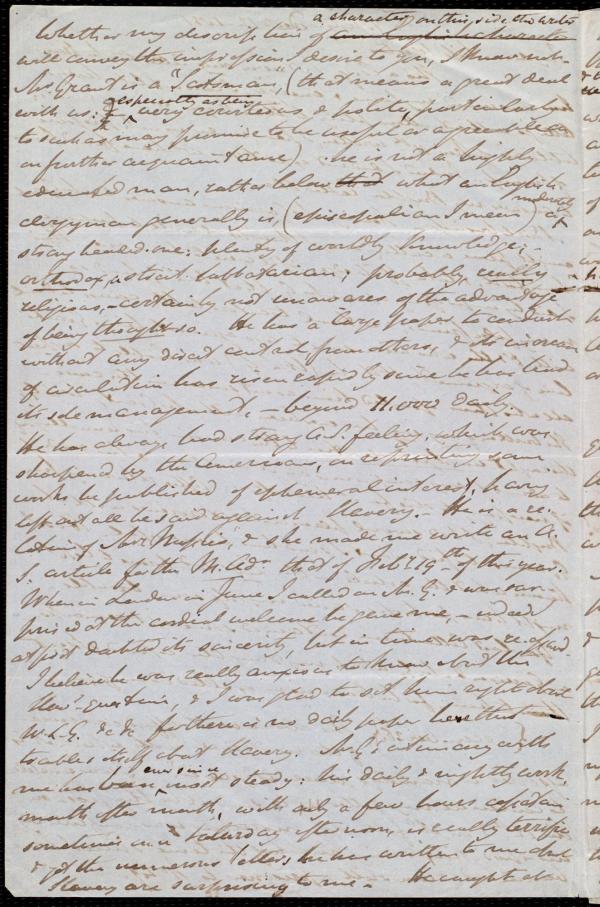 a character, on this side the water
Whether my description of an English character
will convey the impression I desire to you, I know not.
Mr Grant is a "Scotsman," (that means a great deal
with us:
especially as being
very courteous & polite, particularly
to such as may promise to be useful or agreeable
on further acquaintance) he is not a highly
educated man, rather below that what an English
clergyman generally is, (episcopalian I mean) a
moderately
strong headed one; plenty of worldly knowledge; -
orthodox, a strict sabbatarian; probably really
religious, - certainly not unaware of the advantage
of being thought so. He has a large paper to conduct
without any direct control from others, & its increase
of circulation has risen rapidly since he has had
its sole management, - beyond 11.000 daily.
He has always had strong A.S. feeling, which was
sharpened by the Americans, in reprinting some
works he published of ephemeral interest, having
left out all he said against slavery. - He is a re-
lation of Mrs & she made me write an A.
S. article for the M. Adr that of Feby 19th of this year.
When in London in June I called on Mr. G. & was sur-
prised at the cordial welcome he gave me, - indeed
at first doubted its sincerity, but in time was re-assured.
I believe he was really anxious to know about the
Slavy question, & I was glad to set him right about
W.L.G. &c &c for there is no daily paper here that
troubles itself about slavery. Mr G's intimacy with
me has been
ever since
most steady: his daily & nightly work,
month after month, with only a few hours
sometimes on a Saturday afternoon, is really terrific
& yet the numerous letters he has written to me about
Slavery are surprising to me - He caught